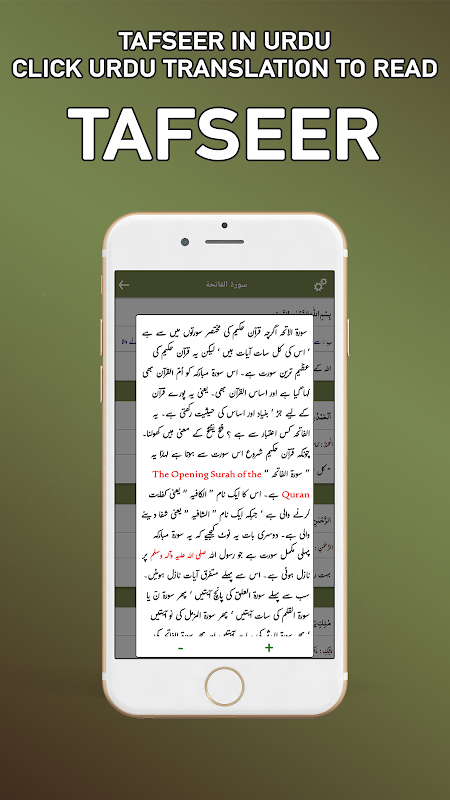 TAFSEER IN URDU
CLICK URDU TRANSLATION TO READ
TAFSEER
سورة الفاتحة
سورۃ الاتحہ اگرچہ قرآن حکیم کی مختصر سورتوں میں سے ہے
' اس کی کل سات آیات ہیں ' لیکن یہ قرآن حکیم کی
عظیم ترین سورت ہے۔ اس سورۃ مبارکہ کو اُمّ القرآن بھی
کہا گیا ہے اور اساس القرآن بھی۔ یعنی یہ پورے قرآن
کے لیے جڑ ' بنیاد اور اساس کی حیثیت رکھتی ہے۔ یہ
الفاتحہ کس اعتبار سے ہے ؟ فَتَحَ یَفْتَحُ کے معنی ہیں کھولنا۔
چونکہ قرآن حکیم شروع اس سورت سے ہوتا ہے لہٰذا یہ
" سورۃ الفاتحہ " The Opening Surah of the
Quran ہے۔ اس کا ایک نام " الکافیہ " یعنی کفایت
کرنے والی ہے ' جبکہ ایک نام " الشافیہ " یعنی شفا دینے
والی ہے۔ دوسری بات یہ نوٹ کیجیے کہ یہ سورۃ مبارکہ
پہلی مکمل سورت ہے جو رسول اللہ صلی اللہ علیہ وآلہ وسلم پر
نازل ہوئی ہے۔ اس سے پہلے متفرق آیات نازل ہوئیں۔
سب سے پہلے سورۃ العلق کی پانچ آیتیں ' پھر سورۃ نٓ یا
سورۃ القلم کی سات آیتیں ' پھر سورۃ المزمل کی نو آیتیں
' پھر سورۃ المدثر کی سات آیتیں اور پھر سورۃ الفاتحہ کی
- +